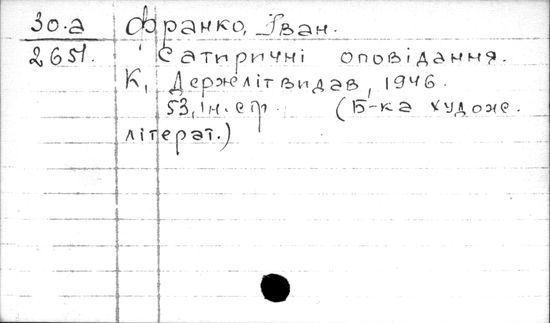 30.а
2651.
Франко, Іван.
Сатиричні оповідання.
К, Держлітвидав, 1946.
53, ін. стр. (Б-ка художе.
літерат.)